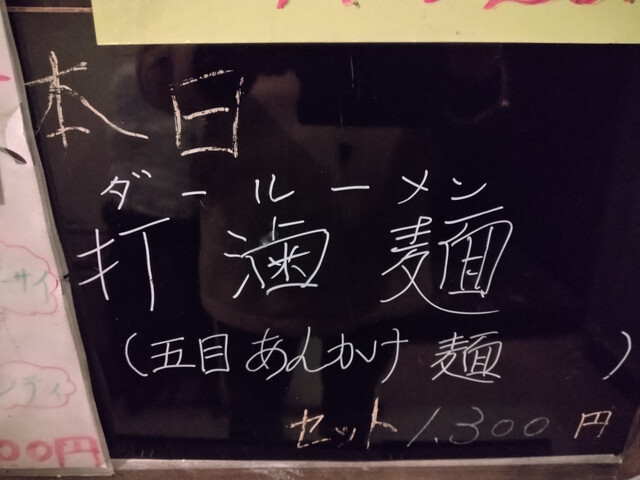 本日
ダールーメン
打滷麺
(五目あんかけ麺)
セット 1,300円
ーサイ
ンディ
00円